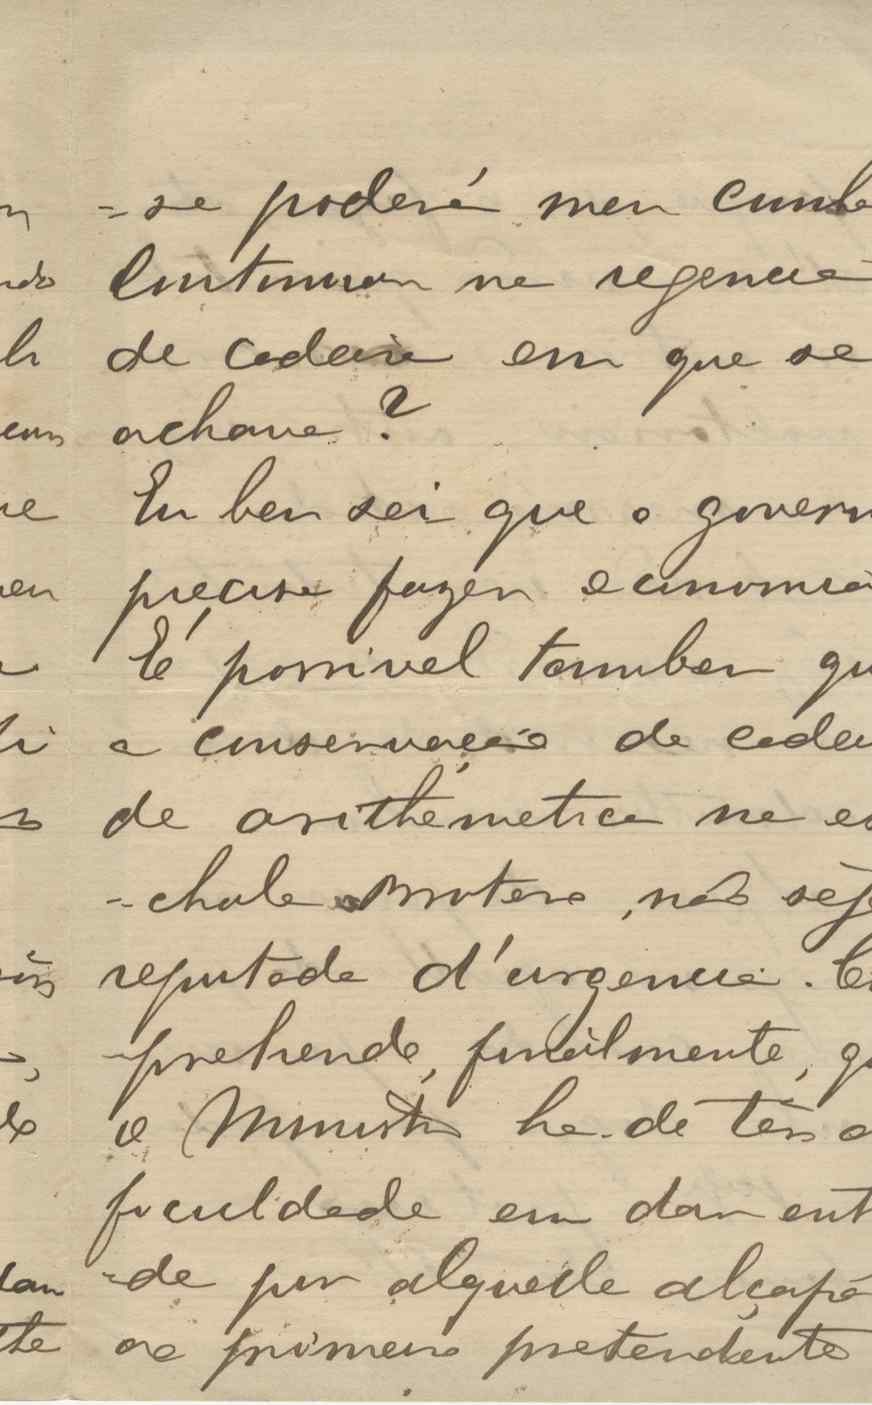 -se poderá meu cunha
continuar na regencia
da cadeira em que se
achava?
Eu bem sei que o govern
precisa fazer economia
É possivel tambem qu
a conservação da cadei
de arithemetica na es
-chola Brotero, não seja
reputada d'urgencia. Co
-prehendo, finalmente, qu
o Ministro ha-de têr a
faculdade em dar ent
-da por alguelle alçapã
ao primeiro pretendente